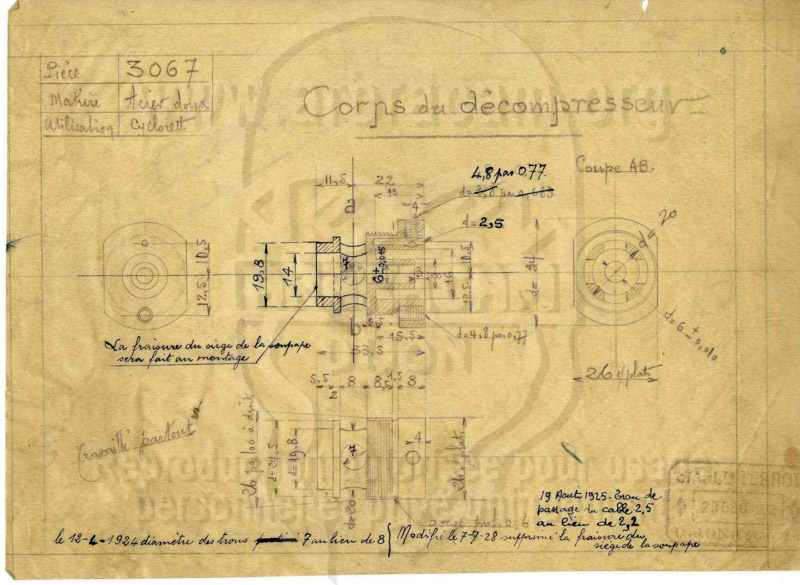 Pièce 3067
Matière Acier doux
Utilisation Cyclorett.
Corps du décompresseur
Coupe AB.
4,8 pas 0,77.
11,5
22
15
4
d=2,5
a
10,5
12,5
19,8
14
7
6 + 0,015
10,5
12,5
16
d=34
20
6
d=6 + 0,010
26 s/plats
b
2,5
15,5
33,5
d=4,8 pas 0,77
La fraisure du siège de la soupape
sera fait au montage
5,5
2
8
8
1,5
8
travaillé partout
26 pas 100 à droite
d=21,5
d=19,8
7
4
d=20
26 s/plats
19 Août 1925 - Trou de
passage du cable 2,5
au lieu de 2,2
le 12-4-1924 diamètre des trous à 7 au lieu de 8
Modifié le 7-7-28 supprimé la fraisure du
siège de la soupape